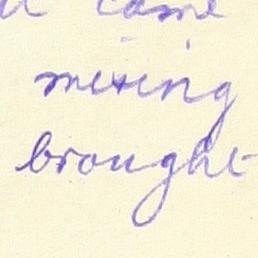 came
mixing
brought